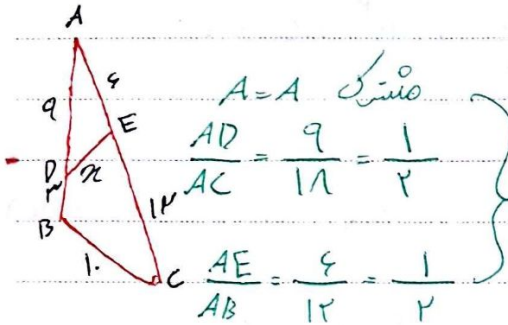 A
۹ ۶
E
D x
۳
B ۱۲
۱۰ C
A = A مشترک
AD/AC = ۹/۱۸ = ۱/۲
AE/AB = ۶/۱۲ = ۱/۲